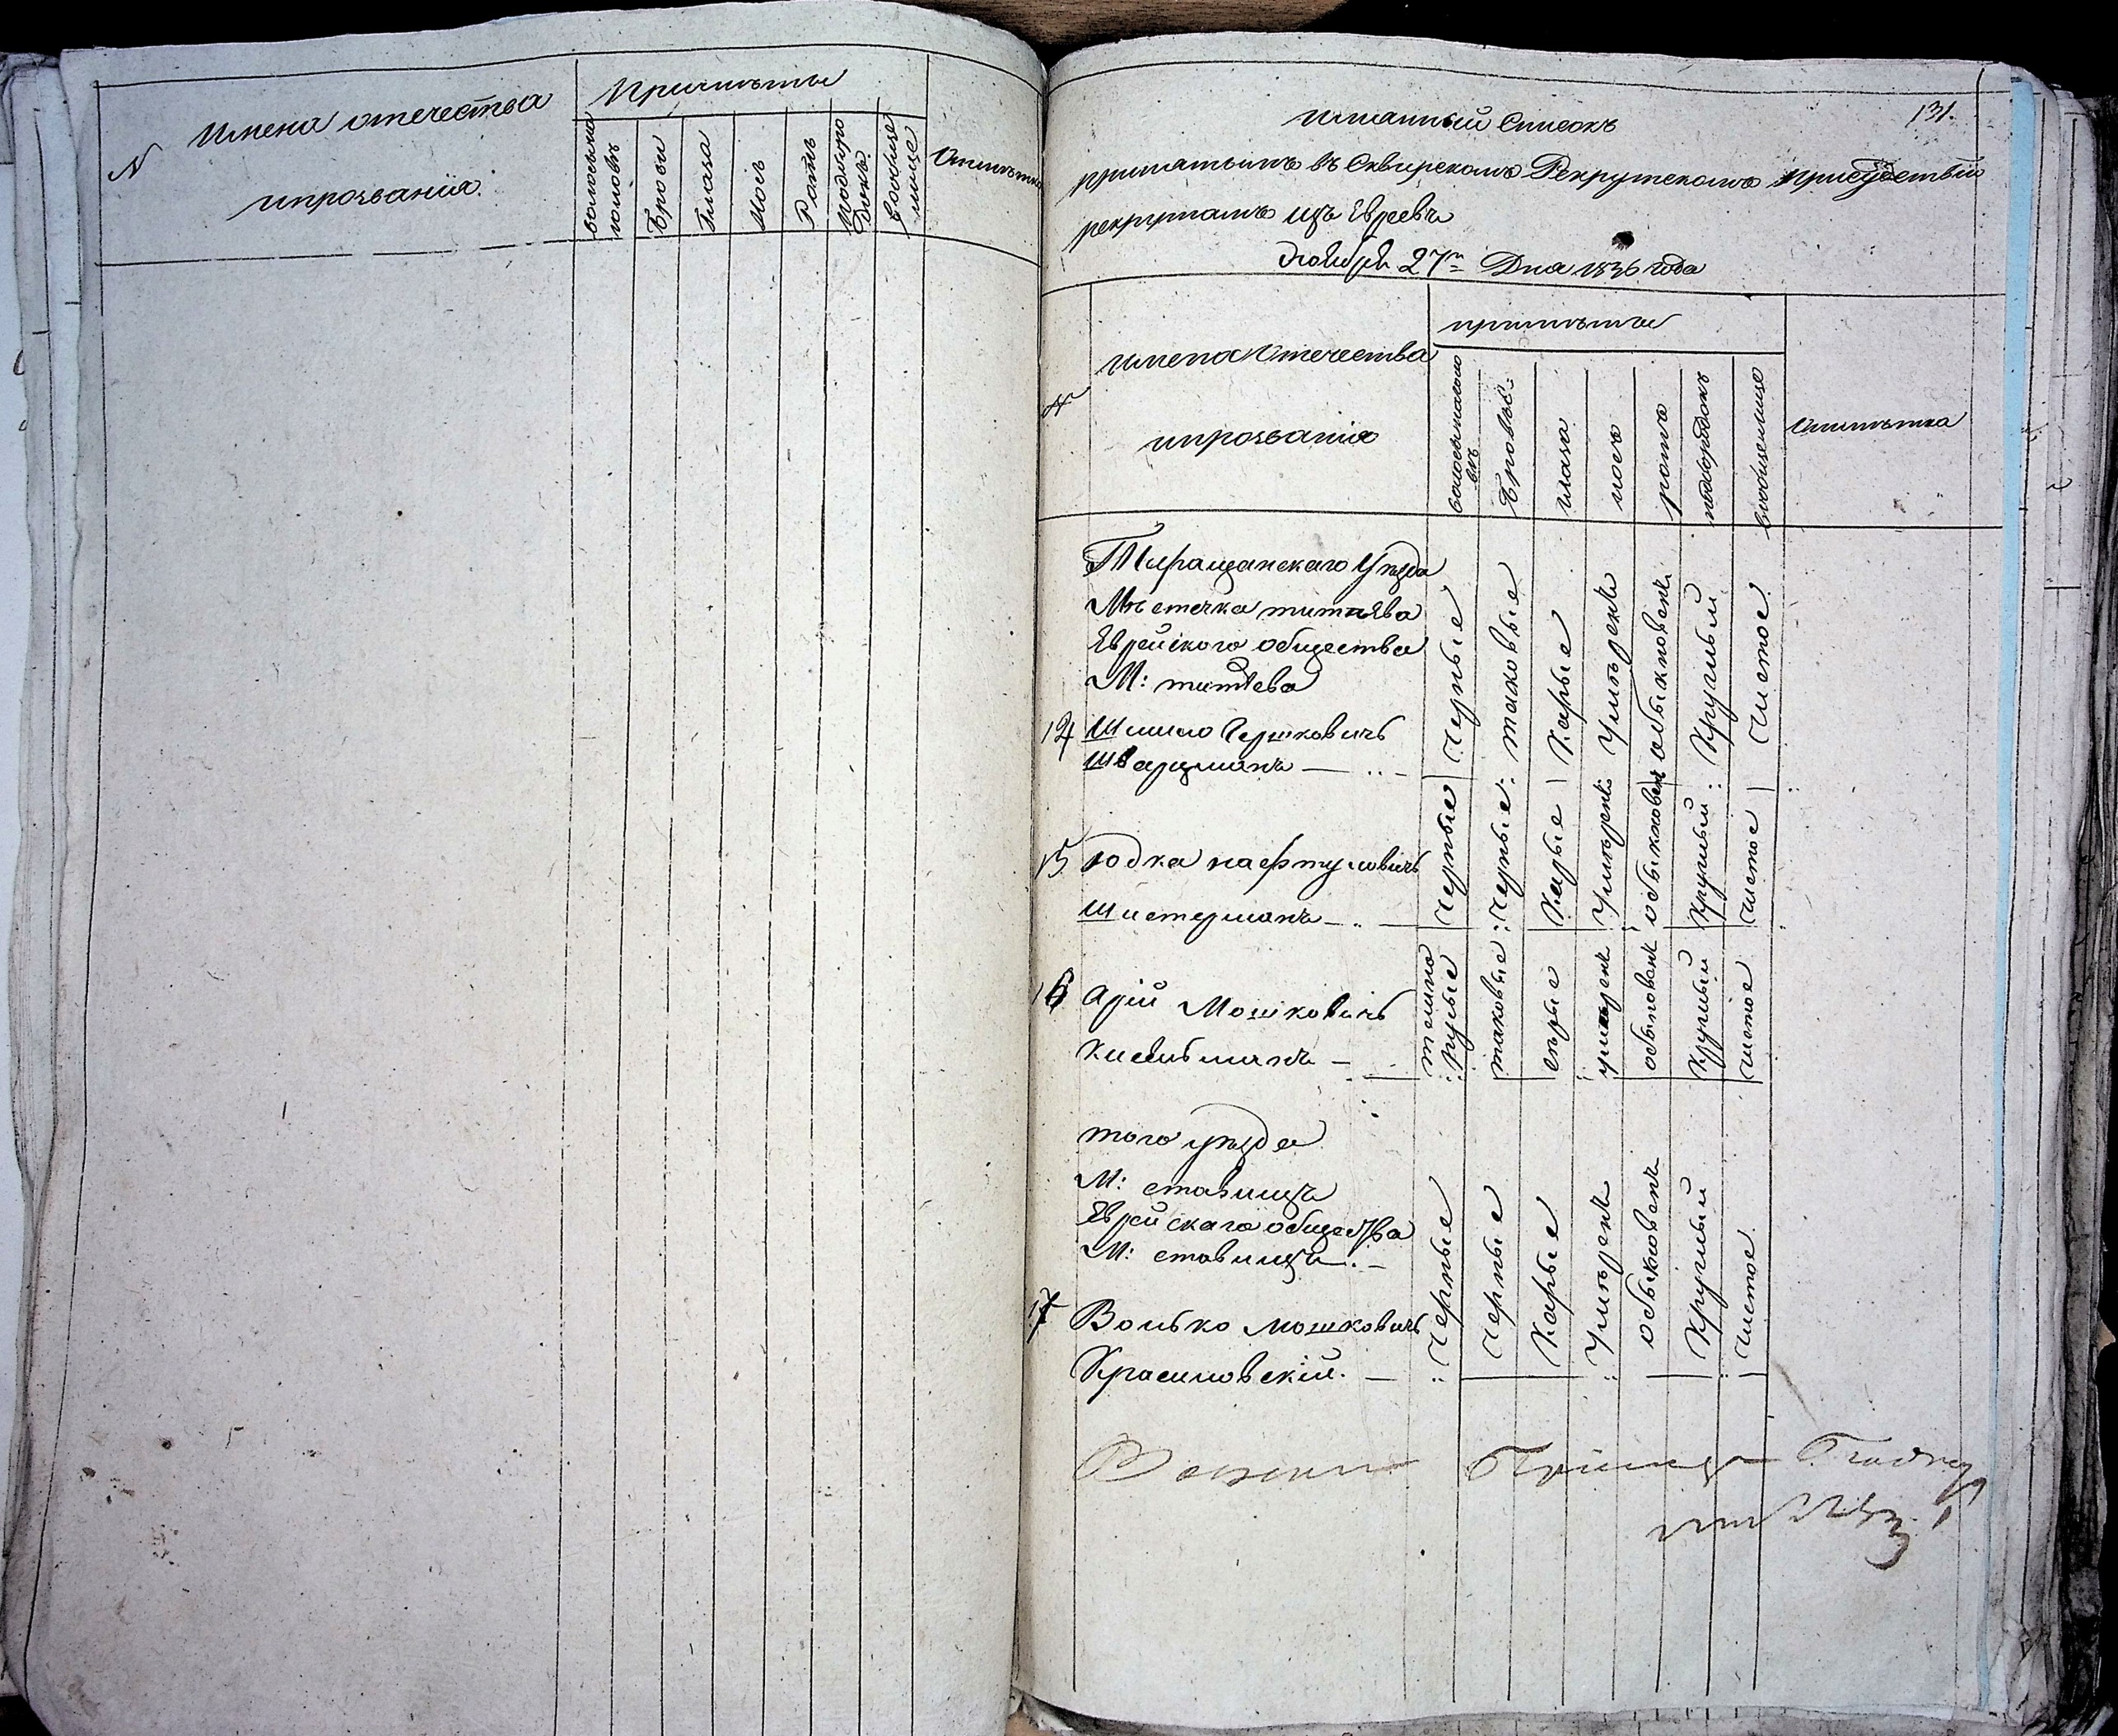 N
Имена отечества
ипрозванія.
Примѣты
волосына
головѣ
Брови
Глаза
Носъ
Ротъ
Подборо
Докъ.
Вообще
лице
Отмѣтка
131.
имянный Списокъ
принятымъ въ Сквирскомъ Рекрутскомъ присудствіи
рекрутамъ изъ Евреевъ
Ноября 27го Дня 1836 года
N
имена Отечества
ипрозванія
примѣты
глаза
носъ
ротъ
подбородокъ
Отмѣтка
Таращанскаго Уѣзда
Мѣстечка титіева
Еврейского общества
М: титіева
14 Шмило Гершковичъ
Шварцманъ
Черные таковые Карые Умѣренъ обыкновенъ Круглый Чистое
15 Юдка нафтуловичъ
Шистерманъ
Черные Черные Карые Умѣренъ обыкновен Круглый Чистое
16 Арій Мошковичъ
темно
русые таковые серые умѣренъ Круглый чистое
того уѣзда
М: ставищъ
Еврейскаго общества
М: ставищъ
17 Волько мошковичъ
Красиловскій.
Черные Черные Карые Умѣренъ обыкновенъ Круглый Чистое